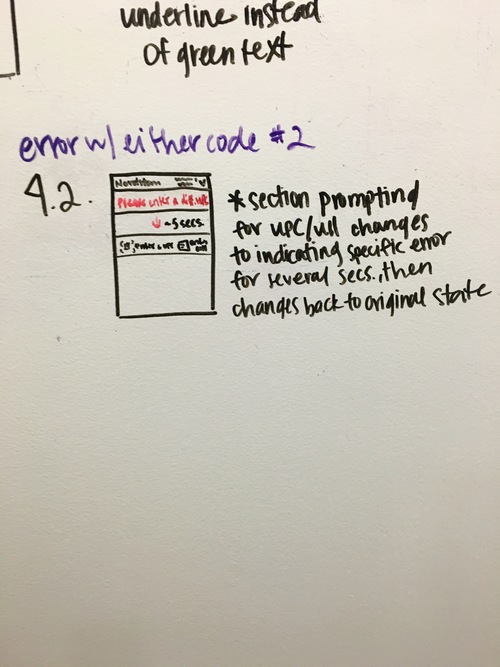 underline instead
of green text
error w/ either code #2
4.2.
Nordstrom
Please enter a diff. UPC
~5 secs.
enter a UPC
* section prompting
for UPC/URL changes
to indicating specific error
for several secs., then
changes back to original state